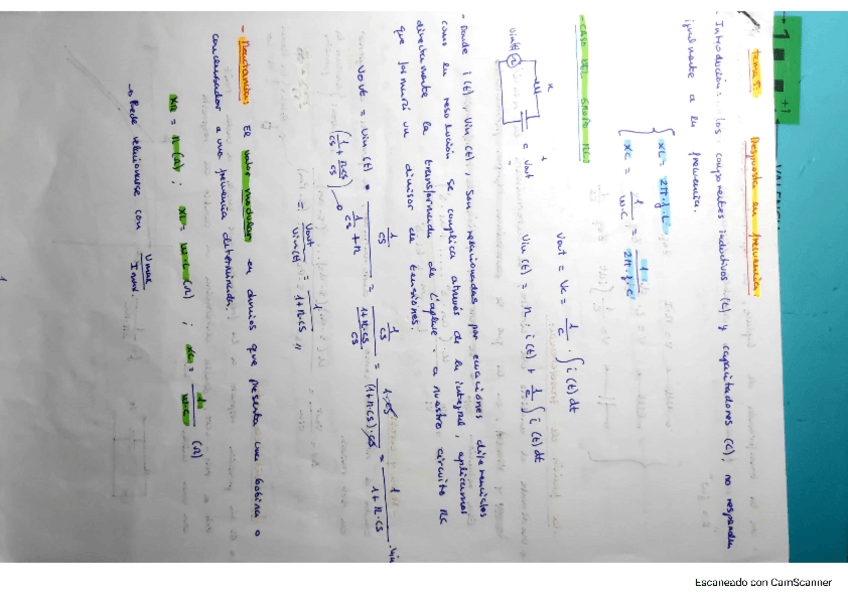 tema 5: Respuesta en frecuencia.
- Introducción: los componentes inductivos (L) y capacitadores (C), no responden
igualmente a la frecuencia.
XL = 2π·f·L
XC = 1/(W·C) = 1/(2π·f·C)
- CASO DEL GRUPO RC:
Vout = Vc = 1/C · ∫ i(t) dt
Vin(t) = R · i(t) + 1/C ∫ i(t) dt
C Vout
- Donde i(t) y Vin(t), son relacionadas por ecuaciones diferenciales
como su resolución se complica através de la integral, aplicamos
directamente la transformada de Laplace a nuestro circuito RC
que formará un divisor de tensiones.
Vout = Vin(t) · (1/CS)/(1/CS + R) = (1/CS)/((1+R·CS)/CS) = 1·CS/((1+R·CS)·CS) = 1/(1+R·CS) · Vin
(1/CS + RCS/CS)
= Vout/Vin(t) = 1/(1+R·CS) "
- Reactancia: El valor modular en ohmios que presenta una bobina o
condensador a una frecuencia determinada.
XR = R (Ω) ; XL = W·L (Ω) ; XC = 1/(W·C) (Ω)
→ Puede relacionarse con Vmax/Imax.
1
Escaneado con CamScanner